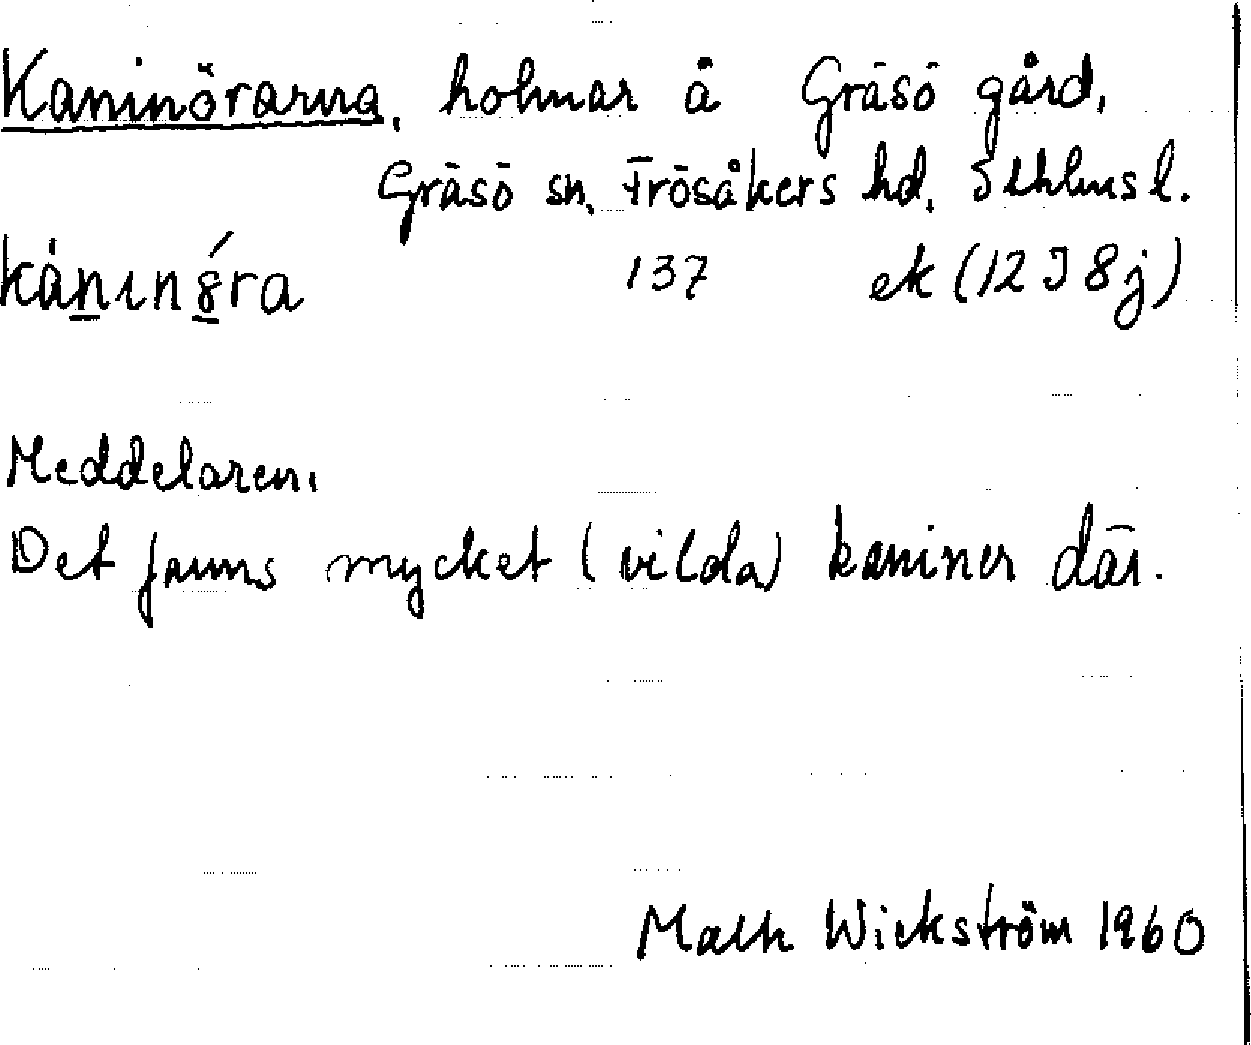 Kaninörarna, holmar å Gräsö gård,
Gräsö sn, Frösåkers hd, Sthlms l.
137 ek (12 I 8j)
Meddelaren.
Det fanns mycket (vilda) kaniner där.
Wickström 1960